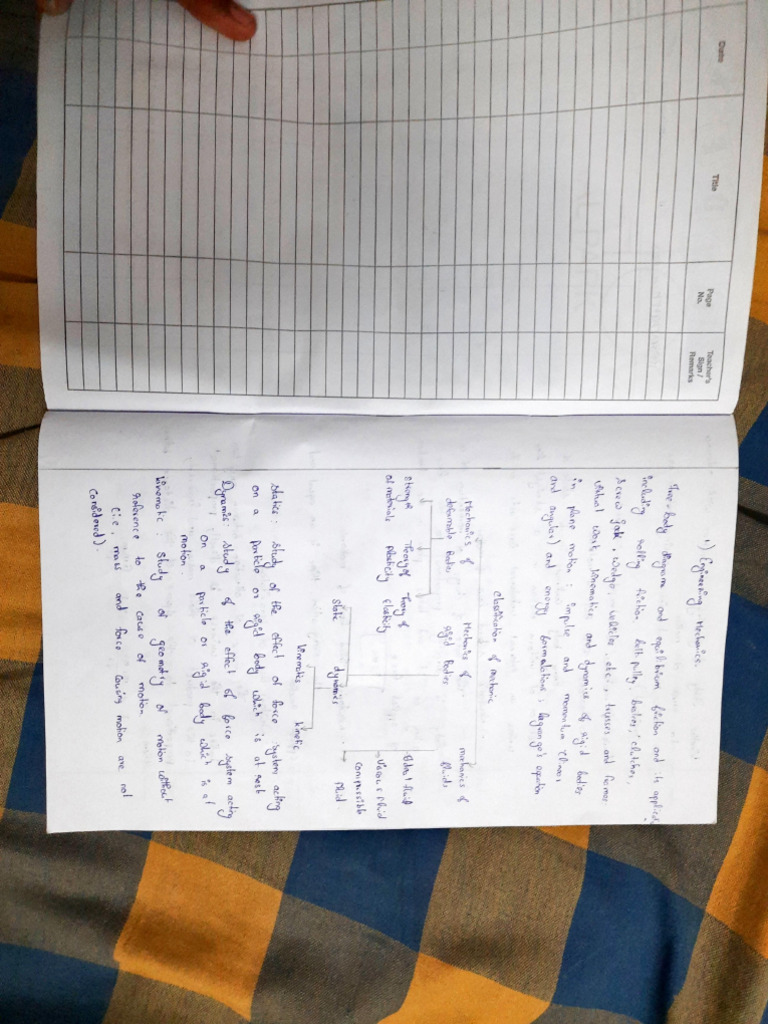 Date
Title
Page No.
Teacher's Sign / Remarks
1) Engineering Mechanics.
Free-body diagram and equilibrium, friction and its applica
including rolling friction, belt-pulley, brakes, clutches,
screw jack, wedge, vehicles etc., trusses and frames
virtual work, kinematics and dynamics of rigid bodies
in plane motion; impulse and momentum (linear
and angular) and energy formulations; Lagrange's equation
Classification of mechanic
Mechanics of deformable Bodies
Mechanics of rigid Bodies
mechanics of fluids
Strength of materials
Theory of Plasticity
Theory of Elasticity
Static
dynamics
Ideal fluid
Viscous Fluid
Compressible fluid.
kinematics
kinetic
Statics: Study of the effect of force system acting
on a particle or rigid body which is at rest
Dynamics: Study of the effect of force system acting
on a particle or rigid body which is at
motion.
Kinematic: Study of geometry of motion without
reference to the cause of motion
(i.e, mass and force causing motion are not
Considered).